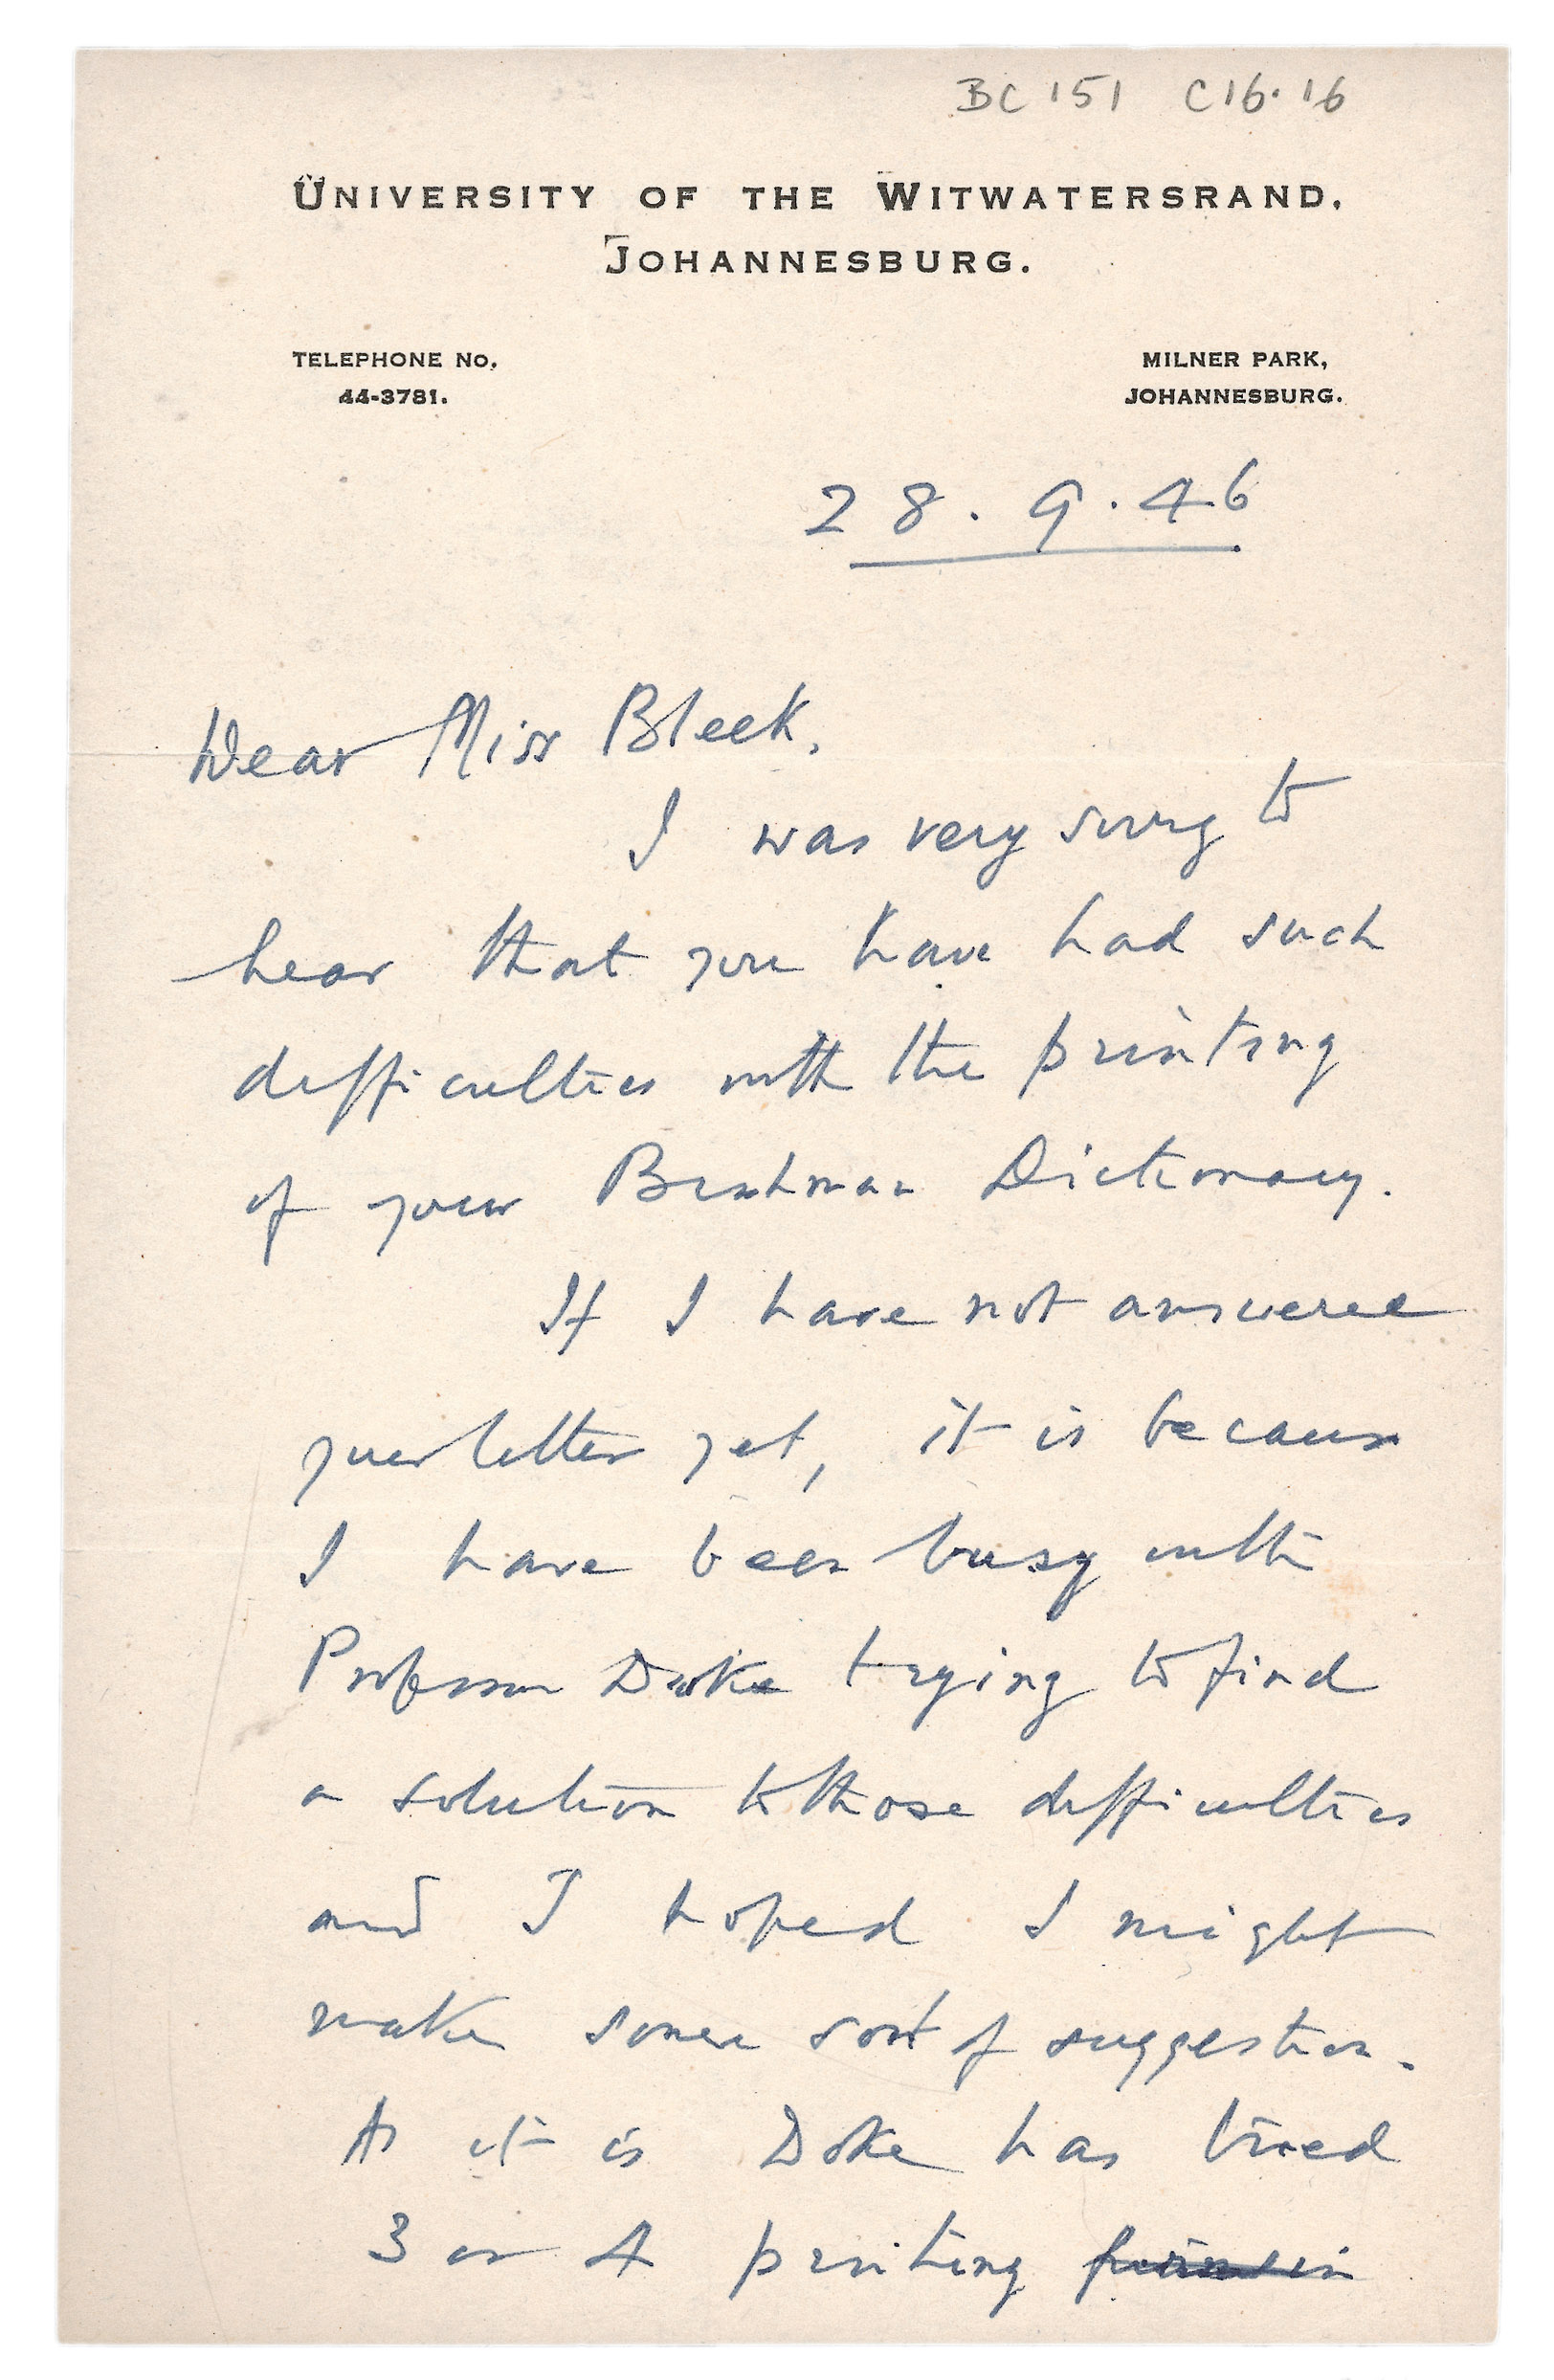 BC 151 C16.16
UNIVERSITY OF THE WITWATERSRAND,
JOHANNESBURG.
TELEPHONE No. MILNER PARK,
44-3781. JOHANNESBURG.
28.9.46
Dear Miss Bleek,
I was very sorry to
hear that you have had such
difficulties with the printing
of your Bushman Dictionary.
If I have not answered
your letter yet, it is because
I have been busy with
Professor Doke trying to find
a solution to those difficulties
and I hoped I might
make some sort of suggestion.
As it is Doke has tried
3 or 4 printing